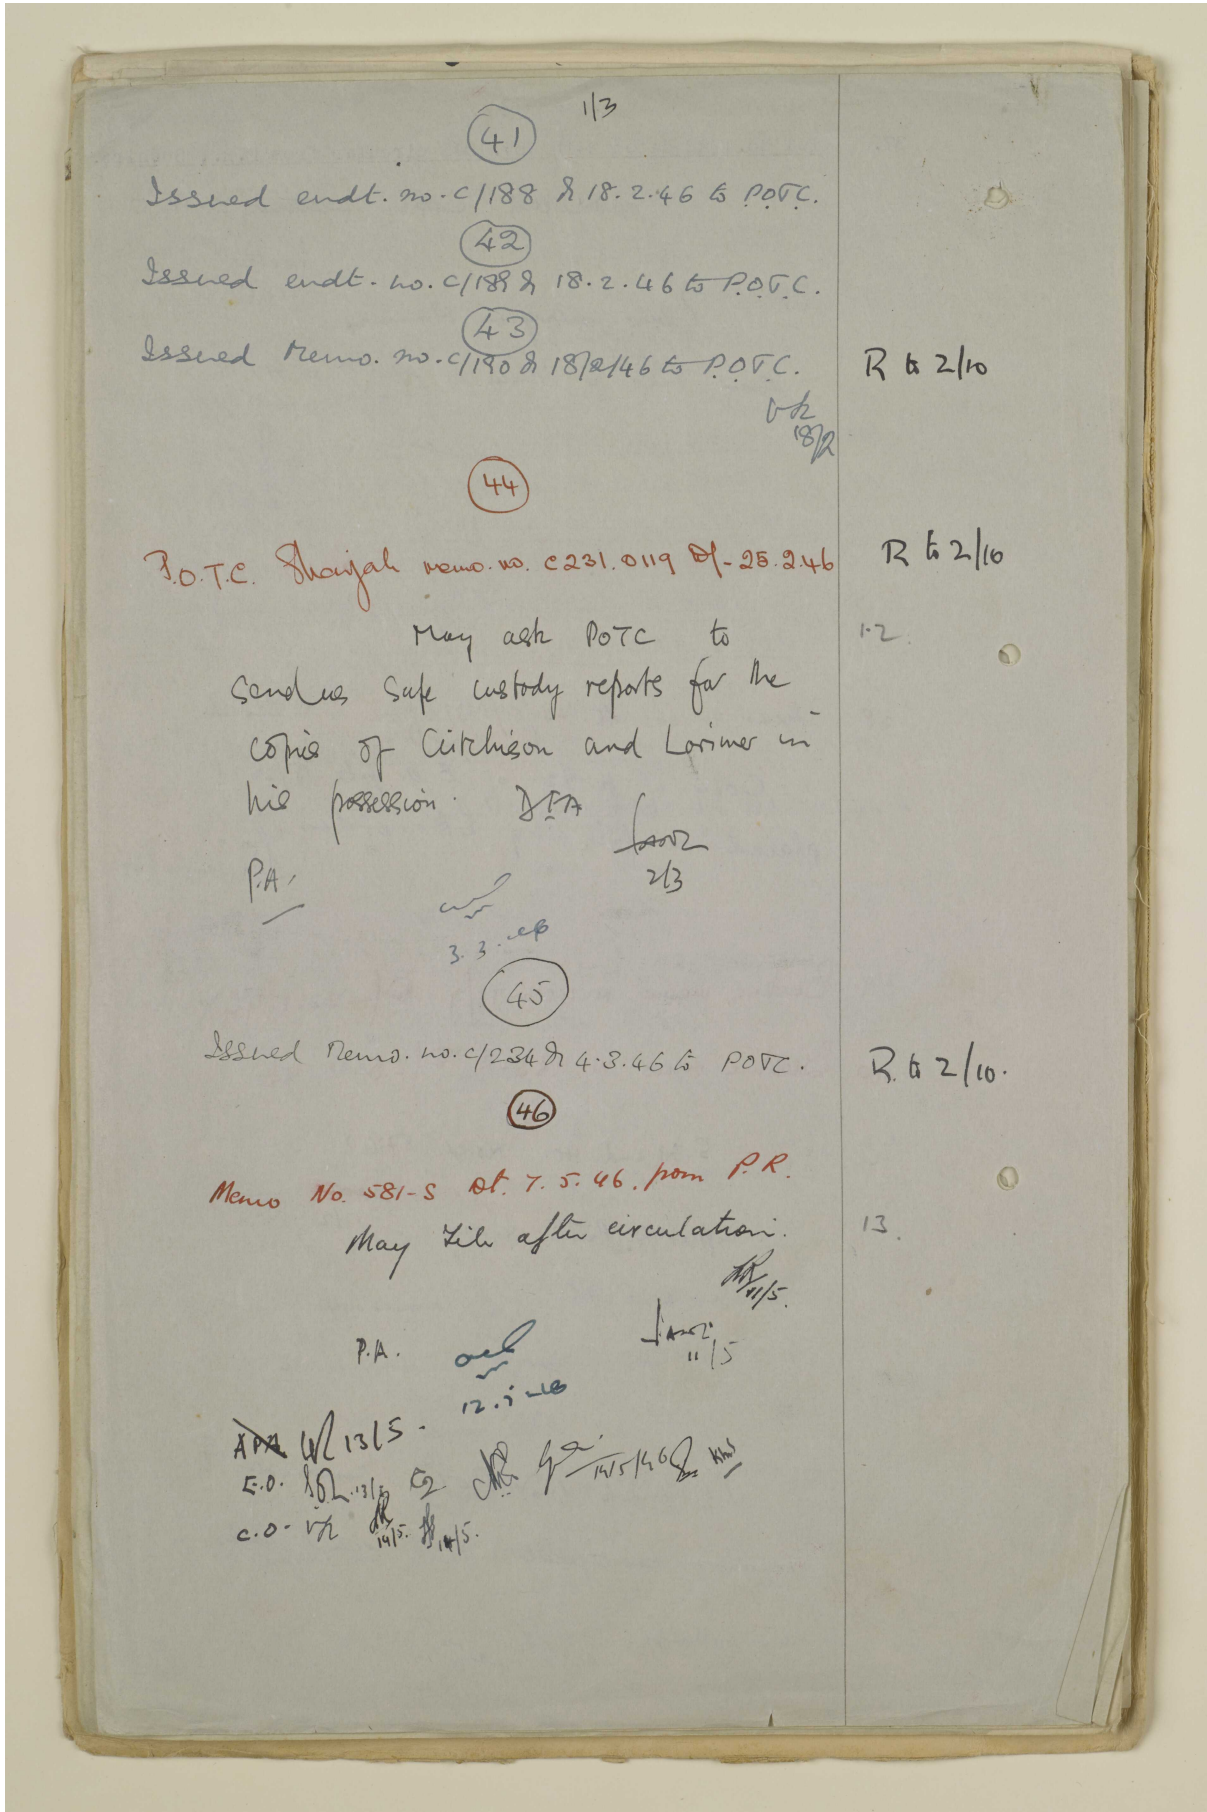 1/3
41
Issued endt. no. C/188 d 18.2.46 to P.O.T.C.
42
Issued endt. no. C/189 d 18.2.46 to P.O.T.C.
43
Issued Memo. no. C/190 d 18/2/46 to P.O.T.C. R to 2/10
18/2
44
P.O.T.C. Sharjah memo. no. C231.0119 D/- 25.2.46 R to 2/10
May ask POTC to 12.
send us safe custody reports for the
copies of Aitchison and Lorimer in
his possession. DFA
2/3
P.A.
3.3.46
45
Issued Memo. no. C/234 d 4.3.46 to POTC. R to 2/10.
46
Memo No. 581-S Dt. 7.5.46. from P.R.
May file after circulation. 13.
11/5.
11/5
P.A.
12.5.46
APA 13/5.
E.O. 13/5 14/5/46
C.O. 14/5. 14/5.